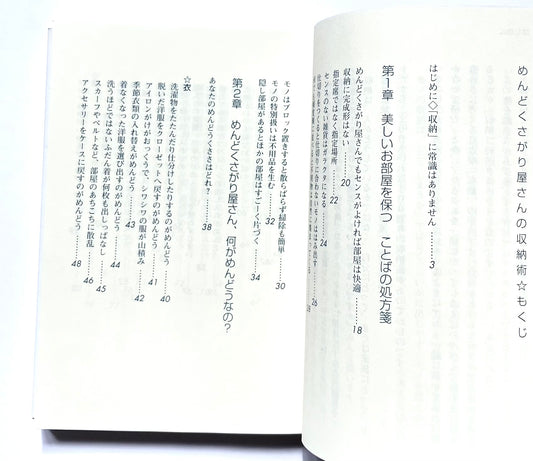 めんどくさがり屋さんの収納術☆もくじ
はじめに◇「収納」に常識はありません……3
第1章 美しいお部屋を保つ ことばの処方箋
めんどくさがり屋さんでもセンスがよければ部屋は快適……18
収納に完成形はない……20
指定席ではなく指定場所……22
センスのない雑貨はガラクタになる……24
仕切りをつくると仕切りに合わないモノははみ出す……26
28
モノはブロック置きすると散らばらず掃除も簡単……30
モノの特別扱いは不用品を生む……32
隠し部屋があるとほかの部屋はすごーく片づく……34
第2章 めんどくさがり屋さん、何がめんどうなの?
あなたのめんどうくささはどれ?……38
☆衣
洗濯物をたたんだり仕分けしたりするのがめんどう……40
脱いだ洋服をクローゼットへ戻すのがめんどう……41
アイロンがけがおっくうで、シワシワの服が山積み……42
季節衣類の入れ替えがめんどう……43
着なくなった洋服を選び出すのがめんどう……44
洗うほどではないふだん着が何枚も出しっぱなし……45
スカーフやベルトなど、部屋のあちこちに散乱……46
アクセサリーをケースに戻すのがめんどう……48